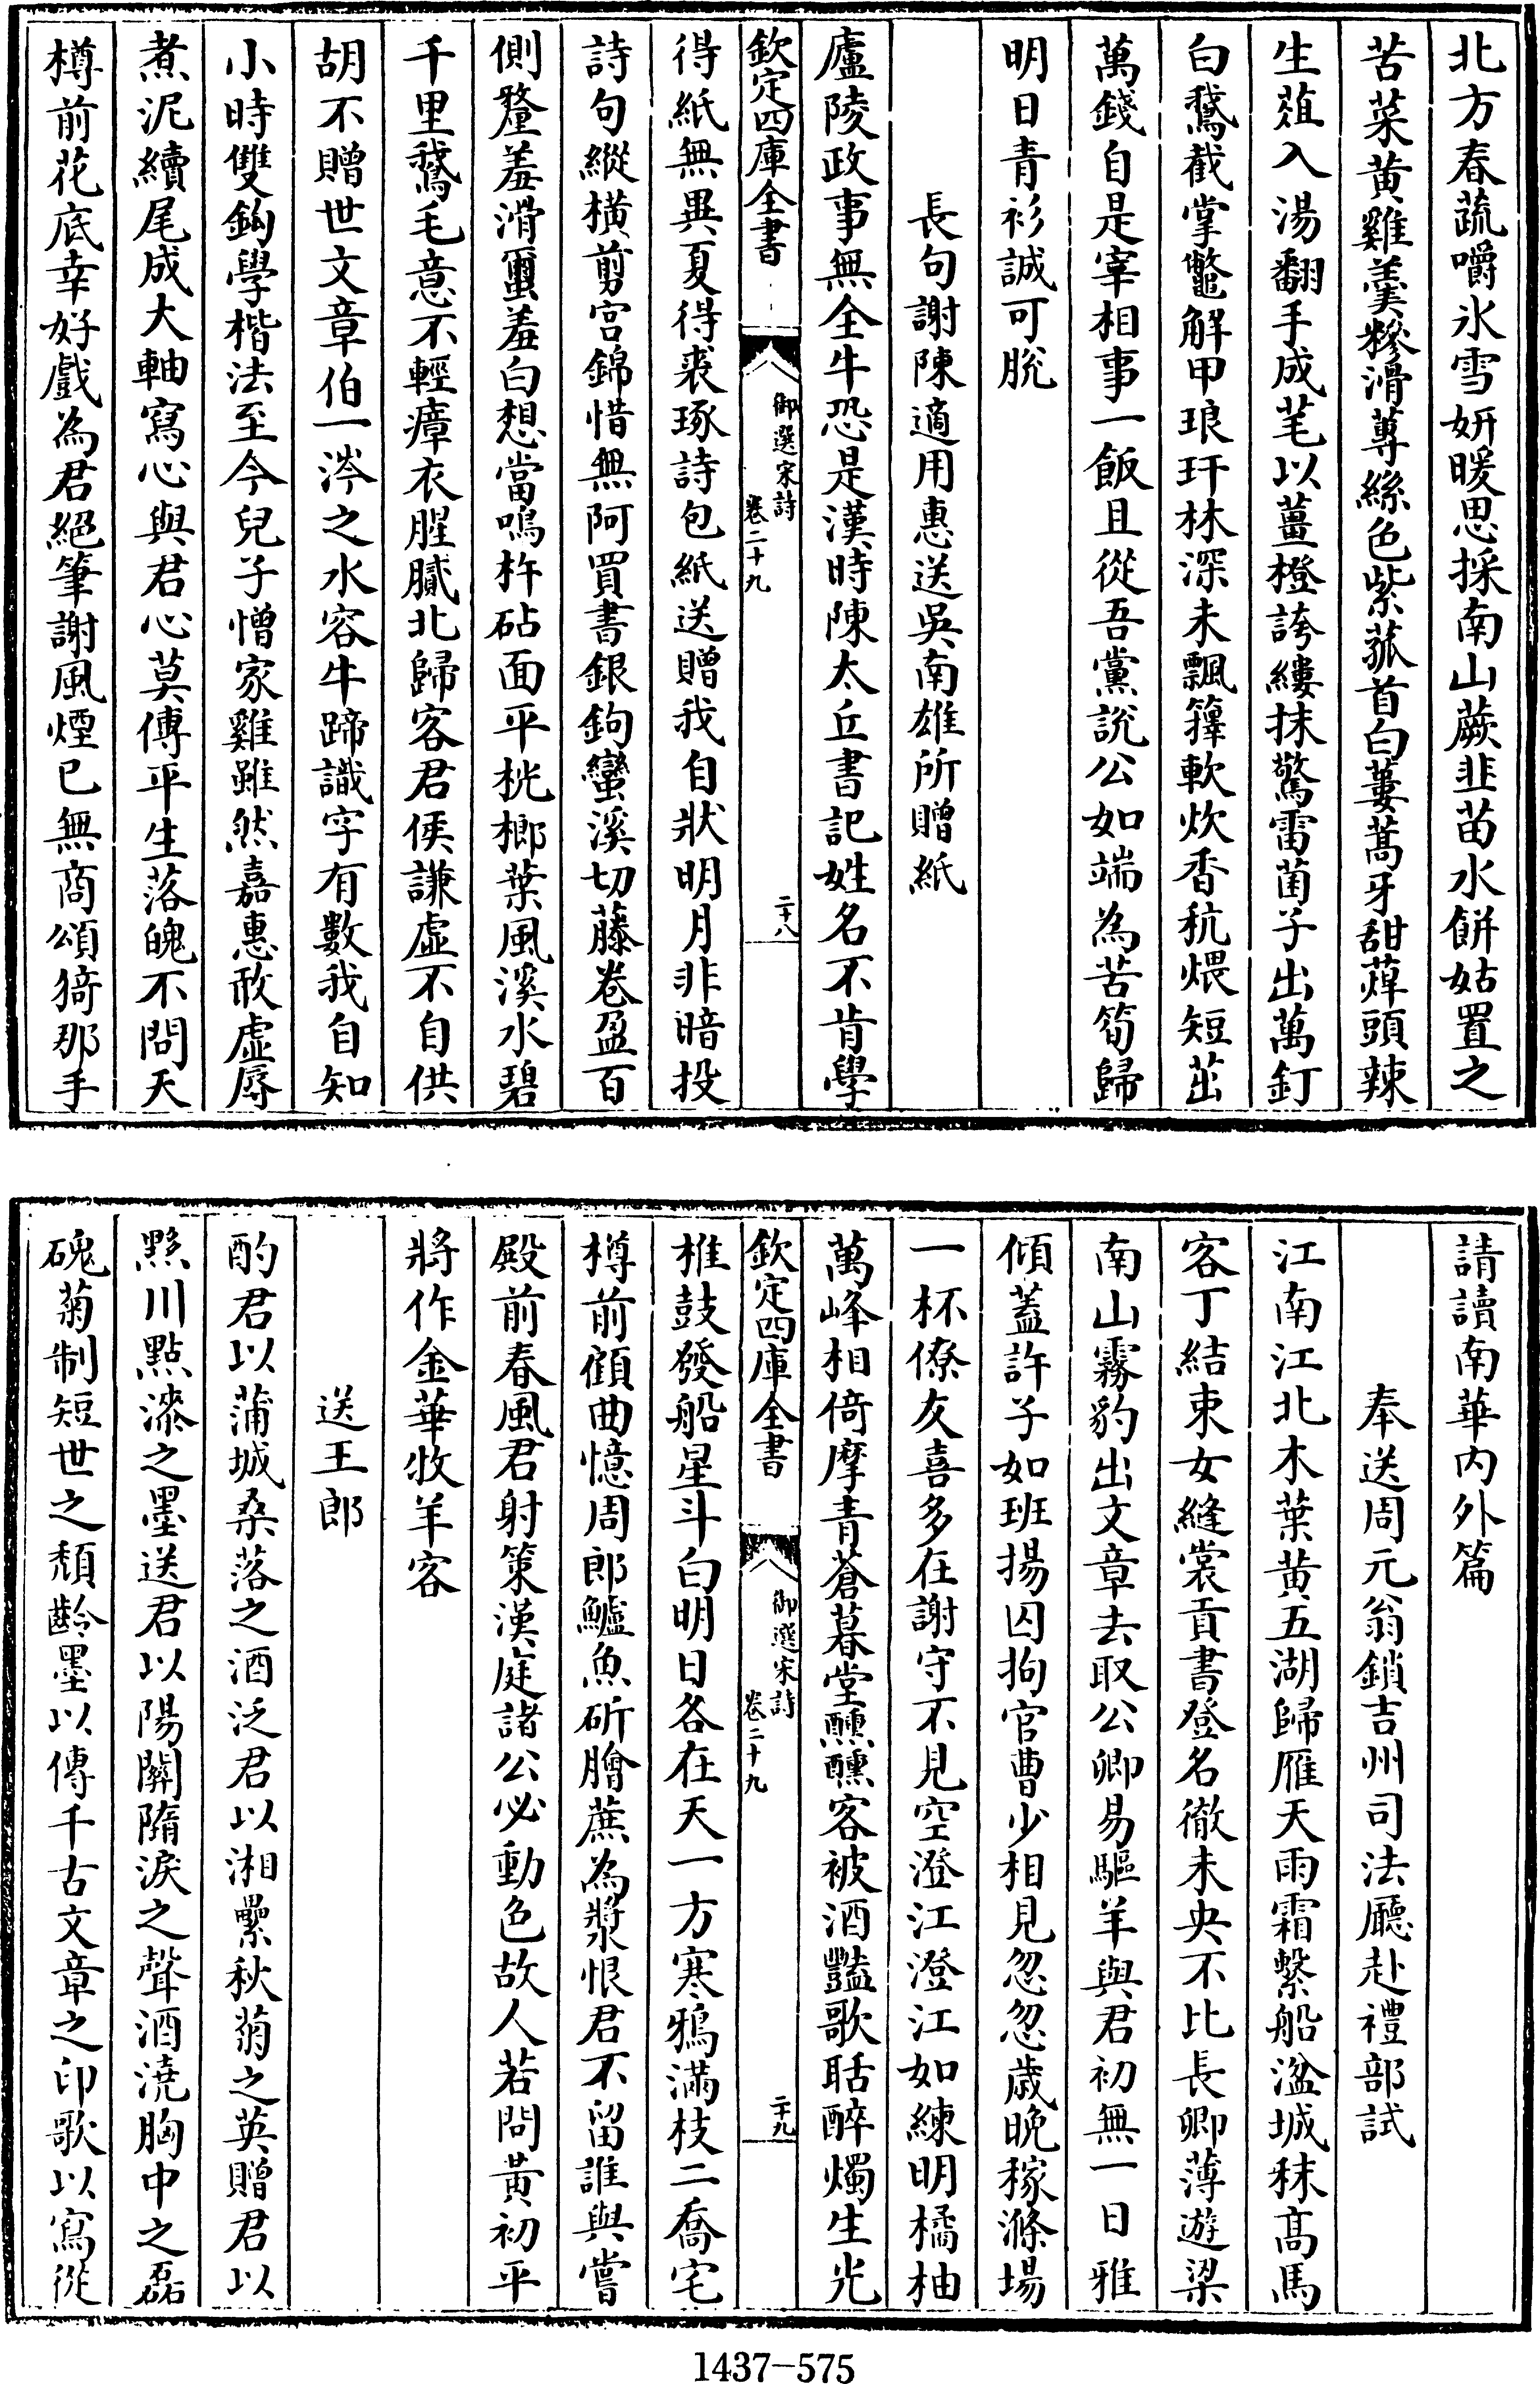 北方春蔬嚼氷雪妍暖思採南山蕨韭苗水餅姑置之
苦菜黄雞羹糝滑蓴絲色紫菰首白蔞蒿牙甜蔊頭辣
生葅入湯翻手成芼以薑橙誇縷抹驚雷菌子出萬釘
白鵞截掌鼈解甲琅玕林深未飄籜軟炊香秔煨短茁
萬錢自是宰相事一飯且從吾黨說公如端為苦筍歸
明日青衫誠可脫
長句謝陳適用惠送吳南雄所贈紙
廬陵政事無全牛恐是漢時陳太丘書記姓名不肯學
欽定四庫全書
御選宋詩
卷二十九
二十八
得紙無異夏得裘琢詩包紙送贈我自狀明月非暗投
詩句縱横剪宫錦惜無阿買書銀鉤蠻溪切藤卷盈百
側釐羞滑蠒羞白想當鳴杵砧面平桄榔葉風溪水碧
千里鵞毛意不輕瘴衣腥膩北歸客君侯謙虛不自供
胡不贈世文章伯一涔之水容牛蹄識字有數我自知
小時雙鉤學楷法至今兒子憎家雞雖然嘉惠敢虛辱
煮泥續尾成大軸寫心與君心莫傳平生落魄不問天
樽前花底幸好戲為君絕筆謝風煙已無商頌猗那手
請讀南華内外篇
奉送周元翁鎖吉州司法廳赴禮部試
江南江北木葉黄五湖歸雁天雨霜繫船湓城秣髙馬
客丁結束女縫裳貢書登名徹未央不比長卿薄遊梁
南山霧豹出文章去取公卿易驅羊與君初無一日雅
傾蓋許子如班揚囚拘官曹少相見忽忽歲晚稼滌場
一杯僚友喜多在謝守不見空澄江澄江如練明橘柚
萬峰相倚摩青蒼暮堂醺醺客被酒豔歌聒醉燭生光
欽定四庫全書
御選宋詩
卷二十九
二十九
椎鼓發船星斗白明日各在天一方寒鴉滿枝二喬宅
樽前顧曲憶周郎鱸魚斫膾蔗為漿恨君不留誰與嘗
殿前春風君射策漢庭諸公必動色故人若問黄初平
將作金華牧羊客
送王郎
酌君以蒲城桑落之酒泛君以湘纍秋菊之英贈君以
黟川點漆之墨送君以陽關隋淚之聲酒澆胸中之磊
磈菊制短世之頹齡墨以傳千古文章之印歌以寫從
1437-575